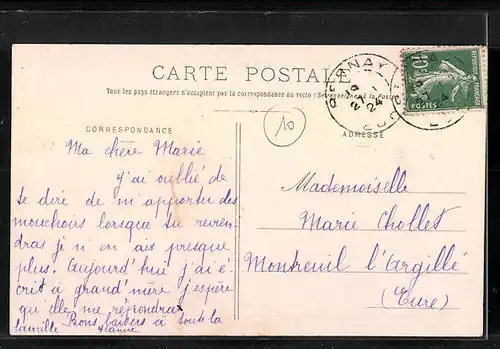 CARTE POSTALE
Tous les pays étrangers n'acceptent pas la correspondance au recto (Se renseigner à la Poste)
BERNAY
24
10
POSTES
CORRESPONDANCE
ADRESSE
Ma chère Marie
j'ai oublié de
te dire de m'apporter des
mouchoirs lorsque tu revien
dras je n'en ais presque
plus. Aujourd'hui j'ai é-
crit à grand'mère j'espère
qu'elle me répondras
Bons baisers à toute la
famille Jeanne
Mademoiselle
Marie Chollet
Montreuil l'Argillé
(Eure)